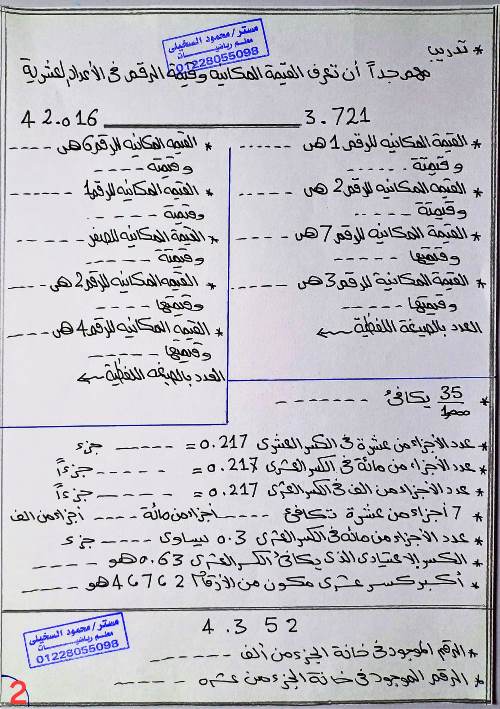 مستر/محمود السخيلى
معلم رياضيات
01228055098
* تدريب
مهم جداً أن تعرف القيمة المكانيه وقيمة الرقم فى الأعداد العشرية
3.721
* القيمة المكانيه للرقم 1 هى
وقيمتة
* القيمه المكانيه للرقم 2 هى
وقيمتة
* القيمة المكانيه للرقم 7 هى
وقيمتها
* القيمه المكانية للرقم 3 هى
وقيمتها
العدد بالصيغة اللفظية ←
42.016
* القيمه المكانيه للرقم 6 هى
وقيمتة
* القيمه المكانيه للرقم 1
وقيمتة
* القيمة المكانيه للصفر
وقيمتة
* القيمه المكانيه للرقم 2 هى
وقيمتها
* القيمه المكانيه للرقم 4 هى
وقيمتها
العدد بالصيغه اللفظية ←
* 35/1000 يكافئ
* عدد الأجزاء من عشرة فى الكسر العشرى 0.217 = جزء
* عدد الأجزاء من مائة فى الكسر العشرى 0.217 = جزءاً
* عدد الأجزاء من الف فى الكسر العشرى 0.217 = جزءاً
* 7 أجزاء من عشرة تكافئ أجزاء من مائة أجزاء من الف
* عدد الأجزاء من مائه فى الكسر العشرى 0.3 يساوى جزء
* الكسر الاعتيادى الذى يكافئ الكسر العشرى 0.63 هو
* أكبر كسر عشرى مكون من الأرقام 2 6 7 6 4 هو
4.352
* الرقم الموجود فى خانة الجزء من ألف
* الرقم الموجود فى خانة الجزء من عشره
مستر/محمود السخيلى
معلم رياضيات
01228055098
2